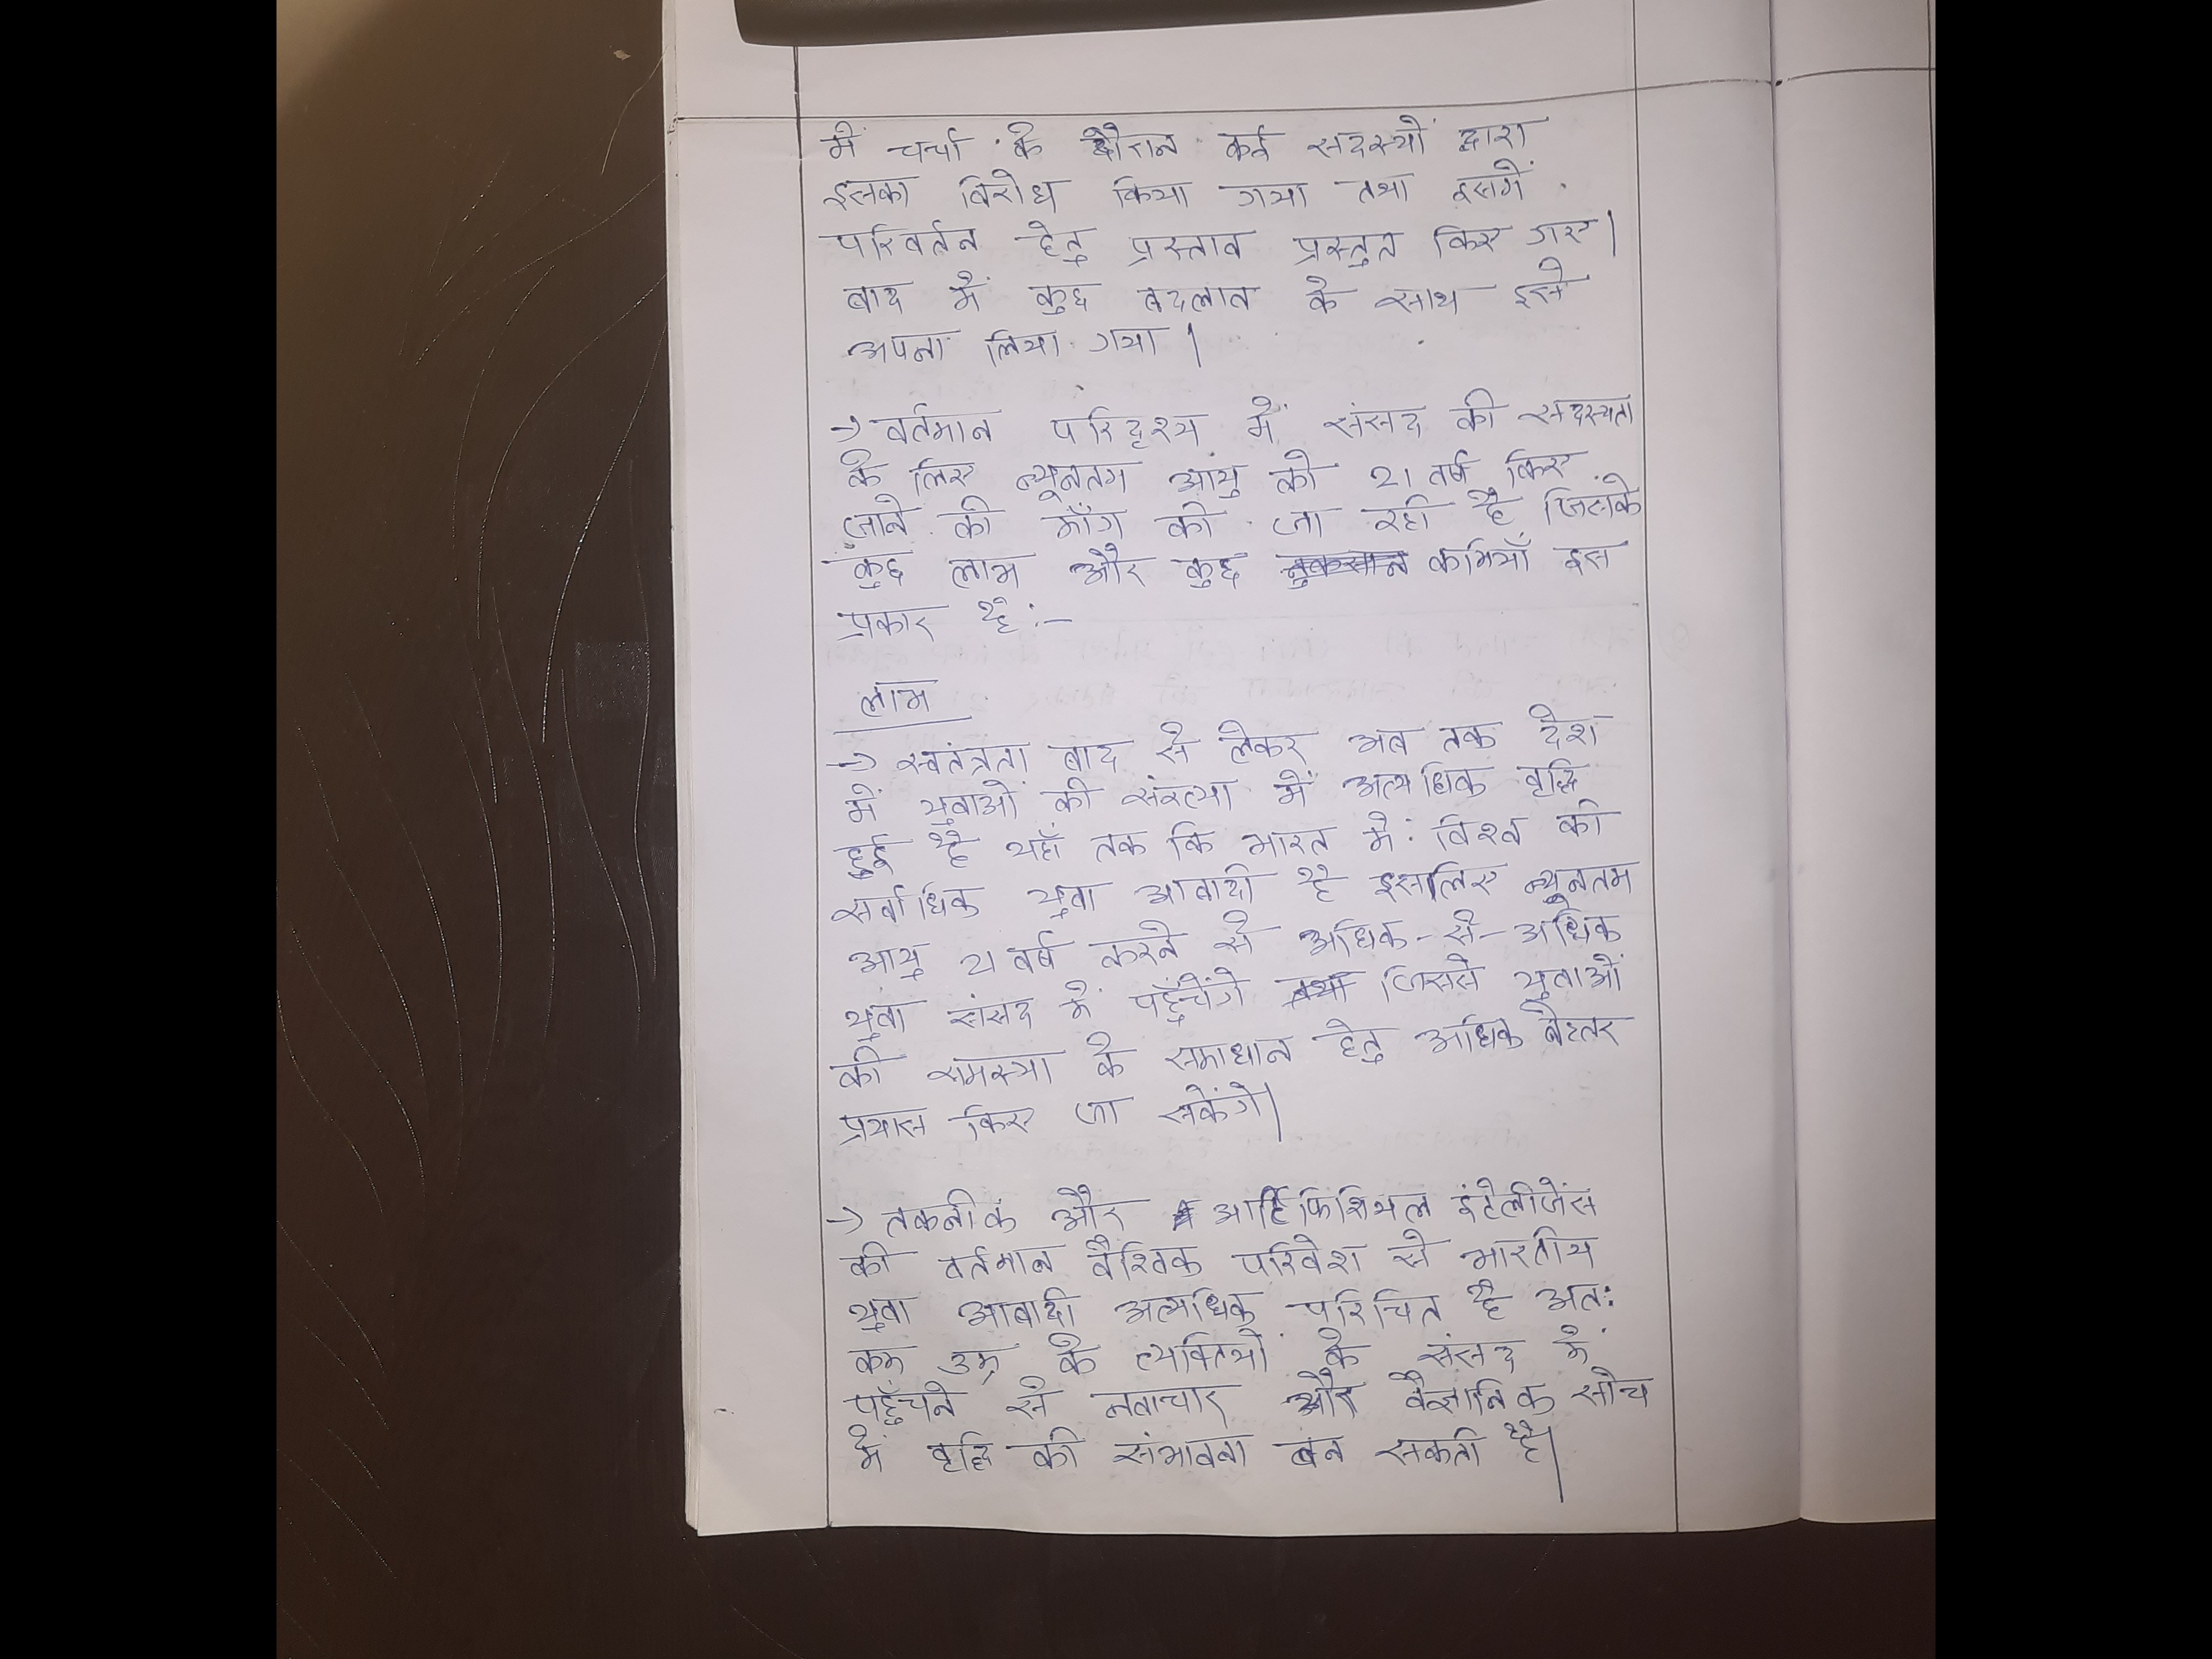 में चर्चा के दौरान कई सदस्यों द्वारा
इसका विरोध किया गया तथा इसमें
परिवर्तन हेतु प्रस्ताव प्रस्तुत किए गए|
बाद में कुछ बदलाव के साथ इसे
अपना लिया गया |
→ वर्तमान परिदृश्य में संसद की सदस्यता
के लिए न्यूनतम आयु को 21 वर्ष किए
जाने की माँग की जा रही है जिसके
कुछ लाभ और कुछ नुकसान कमियाँ इस
प्रकार है :-
लाभ
→ स्वतंत्रता बाद से लेकर अब तक देश
में युवाओं की संख्या में अत्यधिक वृद्धि
हुई है यहाँ तक कि भारत में विश्व की
सर्वाधिक युवा आबादी है इसलिए न्यूनतम
आयु 21 वर्ष करने से अधिक-से-अधिक
युवा संसद में पहुँचेंगे तथा जिससे युवाओं
की समस्या के समाधान हेतु अधिक बेहतर
प्रयास किए जा सकेंगे|
→ तकनीक और आर्टिफिशियल इंटेलीजेंस
की वर्तमान वैश्विक परिवेश से भारतीय
युवा आबादी अत्यधिक परिचित है अतः
कम उम्र के व्यक्तियों के संसद में
पहुँचने से नवाचार और वैज्ञानिक सोच
में वृद्धि की संभावना बन सकती है|